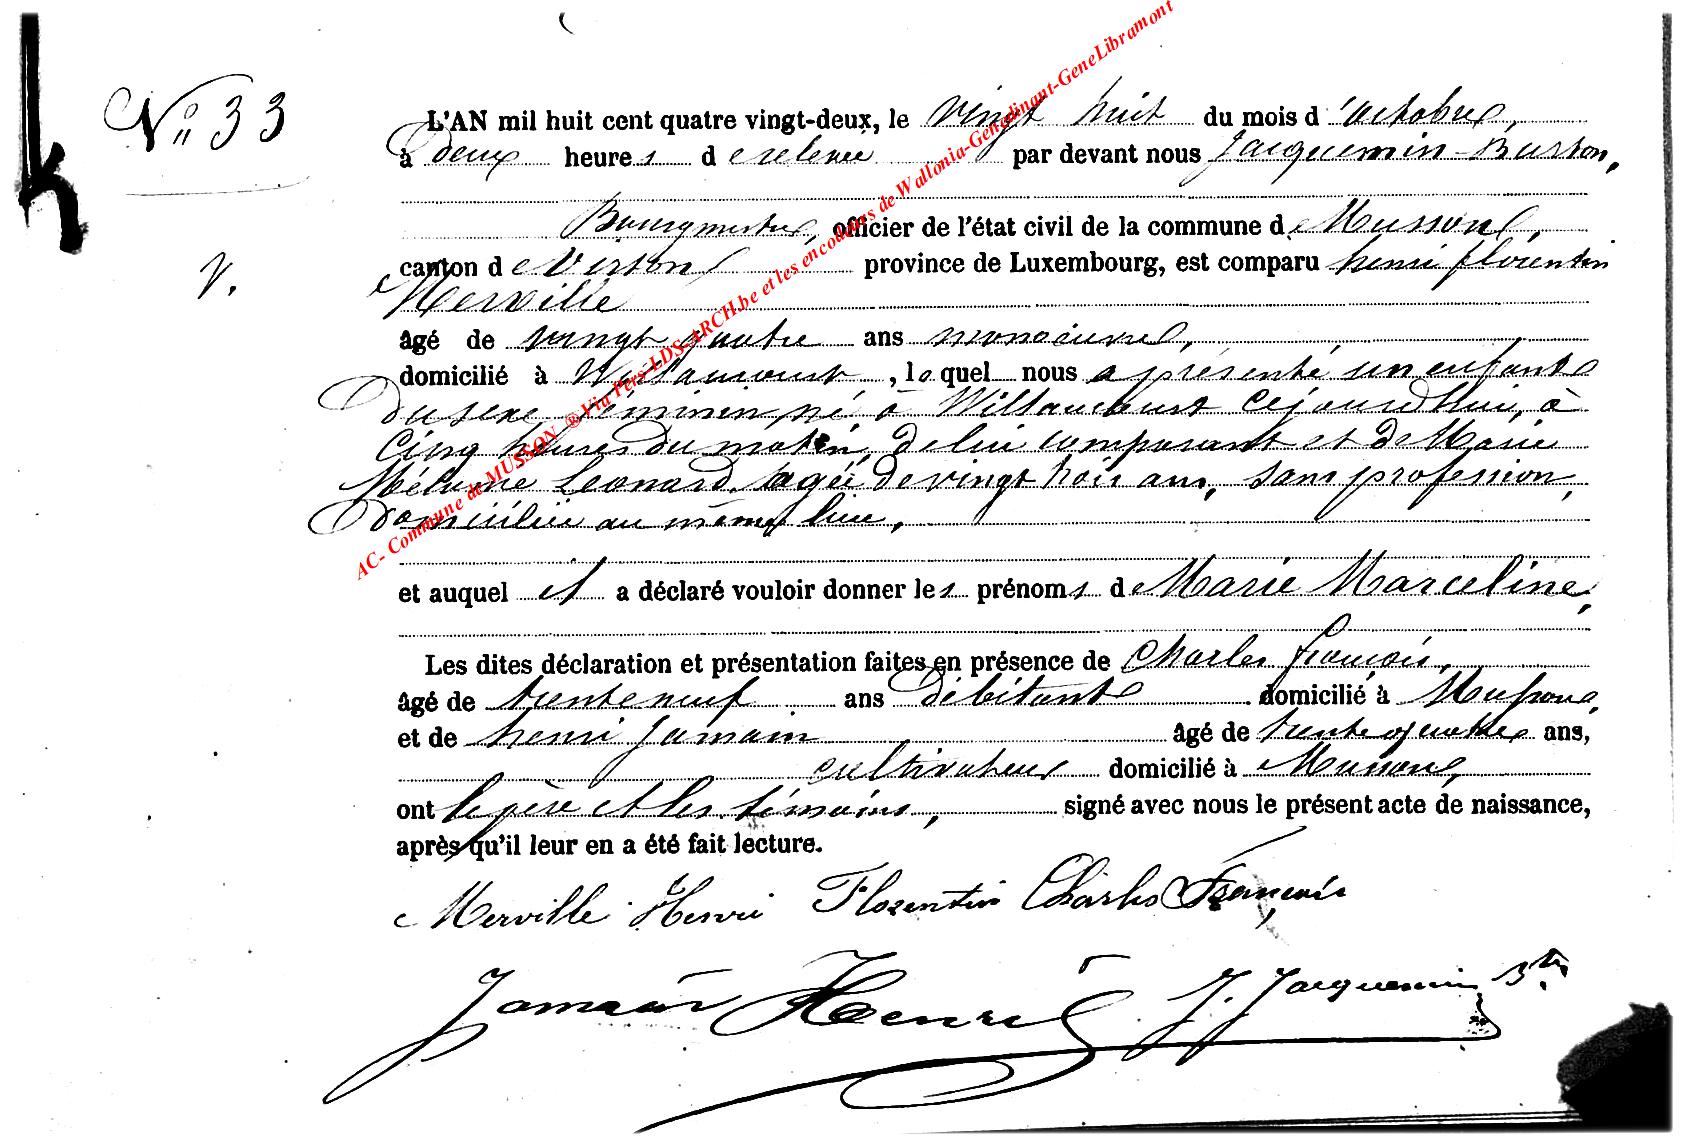 N° 33
L'AN mil huit cent quatre vingt-deux, le vingt huit du mois d'octobre,
à deux heures de relevée par devant nous Jacquemin-Burton,
Bourgmestre, officier de l'état civil de la commune de Musson,
canton de Virton province de Luxembourg, est comparu henri florentin
Merville
âgé de vingt quatre ans manoeuvre,
domicilié à Willancourt, lequel nous a présenté un enfant
du sexe féminin né à Willancourt cejourd'hui, à
cinq heures du matin, de lui comparant et de Marie
Leonard agée de vingt trois ans, sans profession,
domiciliée au même lieu,
et auquel il a déclaré vouloir donner les prénoms de Marie Marceline,
Les dites déclaration et présentation faites en présence de Charles françois,
âgé de trente neuf ans débitant domicilié à Musson,
et de henri Jamain âgé de trente quatre ans,
cultivateur domicilié à Musson,
ont le père et les témoins, signé avec nous le présent acte de naissance,
après qu'il leur en a été fait lecture.
Merville Henri Florentin Charles François
Jamain Henri J. Jacquemin Btre
V.
AC- Commune de MUSSON ® Via Pers-LDS-ARCH.be et les encodeurs de Wallonia-Genedinant-GeneLibramont